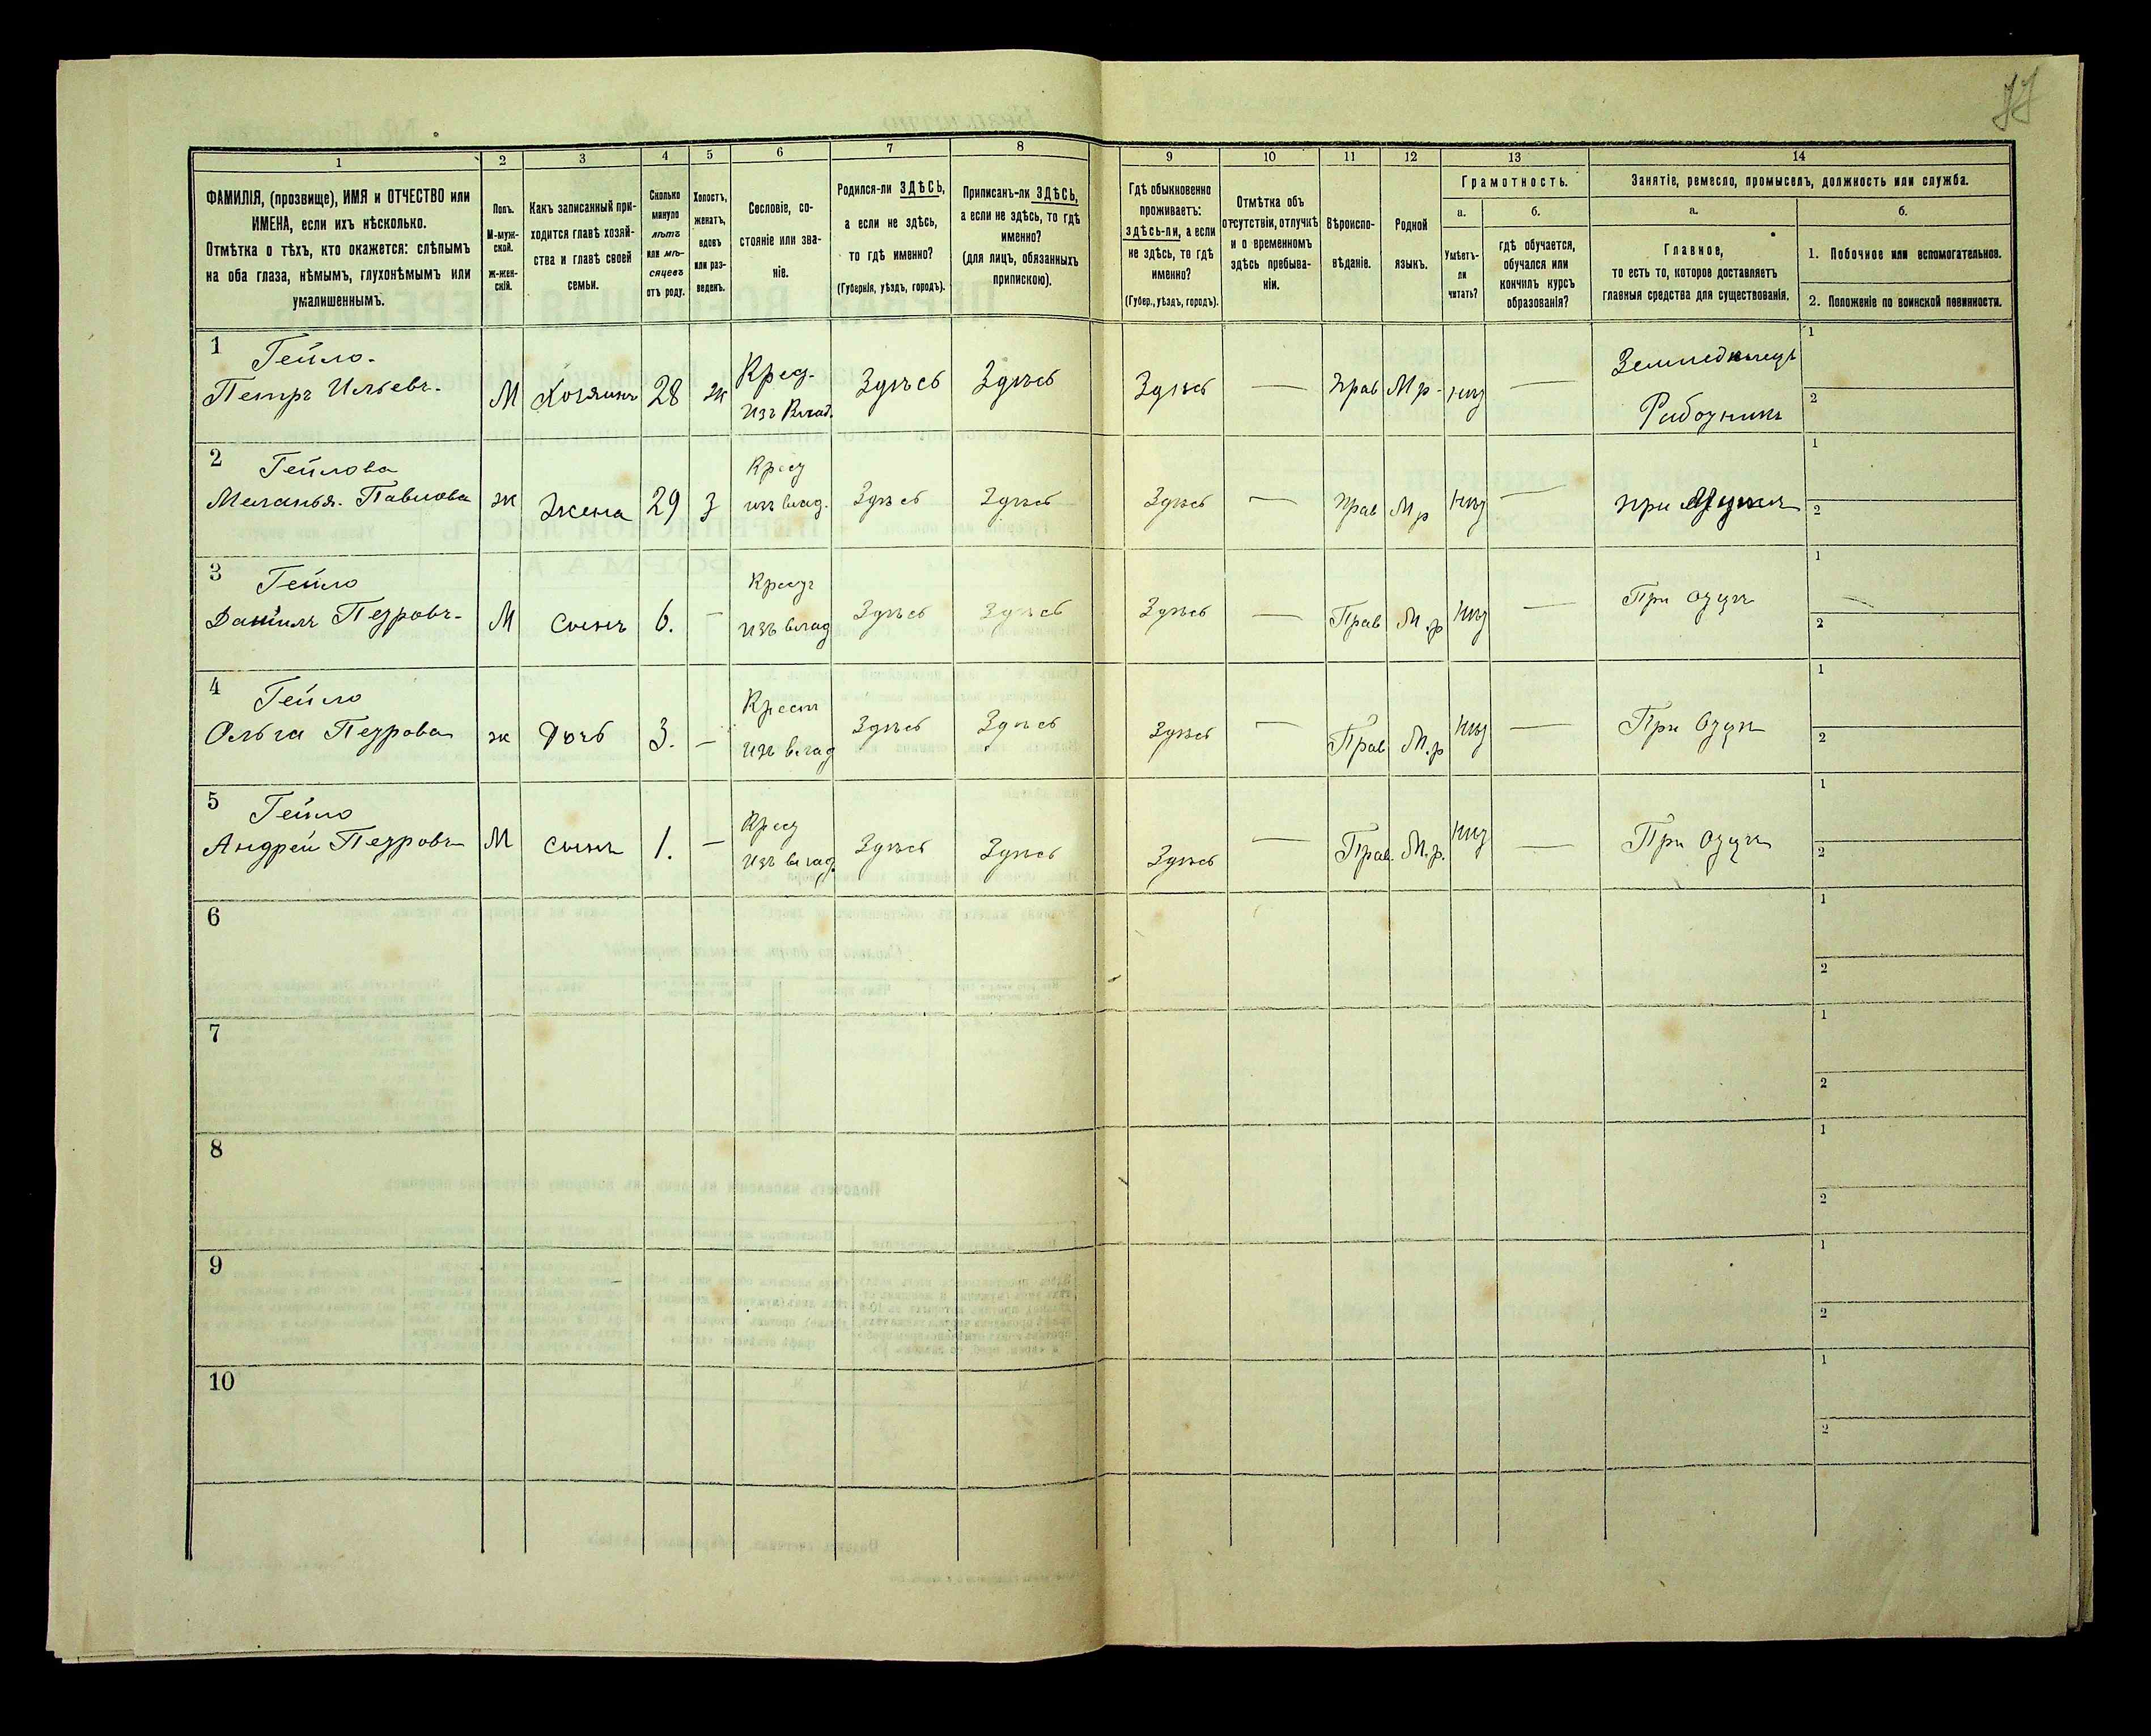 77
1 2 3 4 5 6 7 8 9 10 11 12 13 14
ФАМИЛІЯ, (прозвище), ИМЯ и ОТЧЕСТВО или
ИМЕНА, если ихъ нѣсколько.
Отмѣтка о тѣхъ, кто окажется: слѣпымъ
на оба глаза, нѣмымъ, глухонѣмымъ или
умалишеннымъ.
Полъ.
М-муж-
ской.
ж-жен-
скій.
Какъ записанный при-
ходится главѣ хозяй-
ства и главѣ своей
семьи.
Сколько
минуло
лѣтъ
или мѣ-
сяцевъ
отъ роду.
Холостъ,
женатъ,
вдовъ
или раз-
веденъ.
Сословіе, со-
стояніе или зва-
ніе.
Родился-ли ЗДѢСЬ,
а если не здѣсь,
то гдѣ именно?
(Губернія, уѣздъ, городъ).
Приписанъ-ли ЗДѢСЬ,
а если не здѣсь, то гдѣ
именно?
(для лицъ, обязанныхъ
припискою).
Гдѣ обыкновенно
проживаетъ:
здѣсь-ли, а если
не здѣсь, то гдѣ
именно?
(Губер., уѣздъ, городъ).
Отмѣтка объ
отсутствіи, отлучкѣ
и о временномъ
здѣсь пребыва-
ніи.
Вѣроиспо-
вѣданіе.
Родной
языкъ.
Грамотность.
а.
Умѣетъ-
ли
читать?
б.
гдѣ обучается,
обучался или
кончилъ курсъ
образованія?
Занятіе, ремесло, промыселъ, должность или служба.
а.
Главное,
то есть то, которое доставляетъ
главныя средства для существованія.
б.
1. Побочное или вспомогательное.
2. Положеніе по воинской повинности.
1 Гейло. Крес. Земледѣлецъ 1
Петръ Ильевъ. М Хозяинъ 28 ж изъ Влад. Здѣсь Здѣсь Здѣсь — Прав М р. нѣт — Работникъ 2
2 Гейлова Крест 1
Меланья. Павлова ж Жена 29 з изъ влад. Здѣсь Здѣсь Здѣсь — Прав М р нѣт — при Мужѣ 2
3 Гейло Крест 1
Данилъ Петровъ. М сынъ 6. — изъ влад Здѣсь Здѣсь Здѣсь — Прав М.р нѣт — При отцѣ 2
4 Гейло Крест 1
Ольга Петрова ж дочь 3. — изъ влад Здѣсь Здѣсь Здѣсь — Прав М.р нѣт — При Отцѣ 2
5 Гейло Крест 1
Андрей Петровъ М сынъ 1. — изъ влад. Здѣсь Здѣсь Здѣсь — Прав. М.р. нѣт — При Отцѣ 2
6 1
2
7 1
2
8 1
2
9 1
2
10 1
2